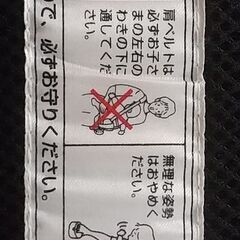 肩ベルトは
必ずお子さ
まの左右の
わきの下に
通してくだ
さい。
無理な姿勢
はおやめく
ださい。
で、必ずお守りください。